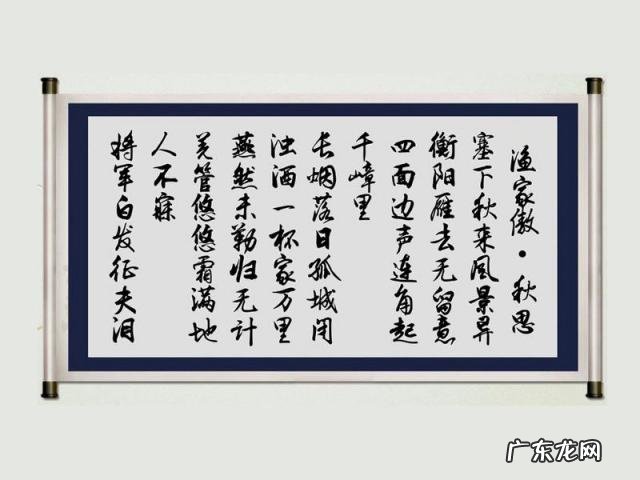 渔家傲·秋思
塞下秋来风景异
衡阳雁去无留意
四面边声连角起
千嶂里
长烟落日孤城闭
浊酒一杯家万里
燕然未勒归无计
羌管悠悠霜满地
人不寐
将军白发征夫泪
广东龙网